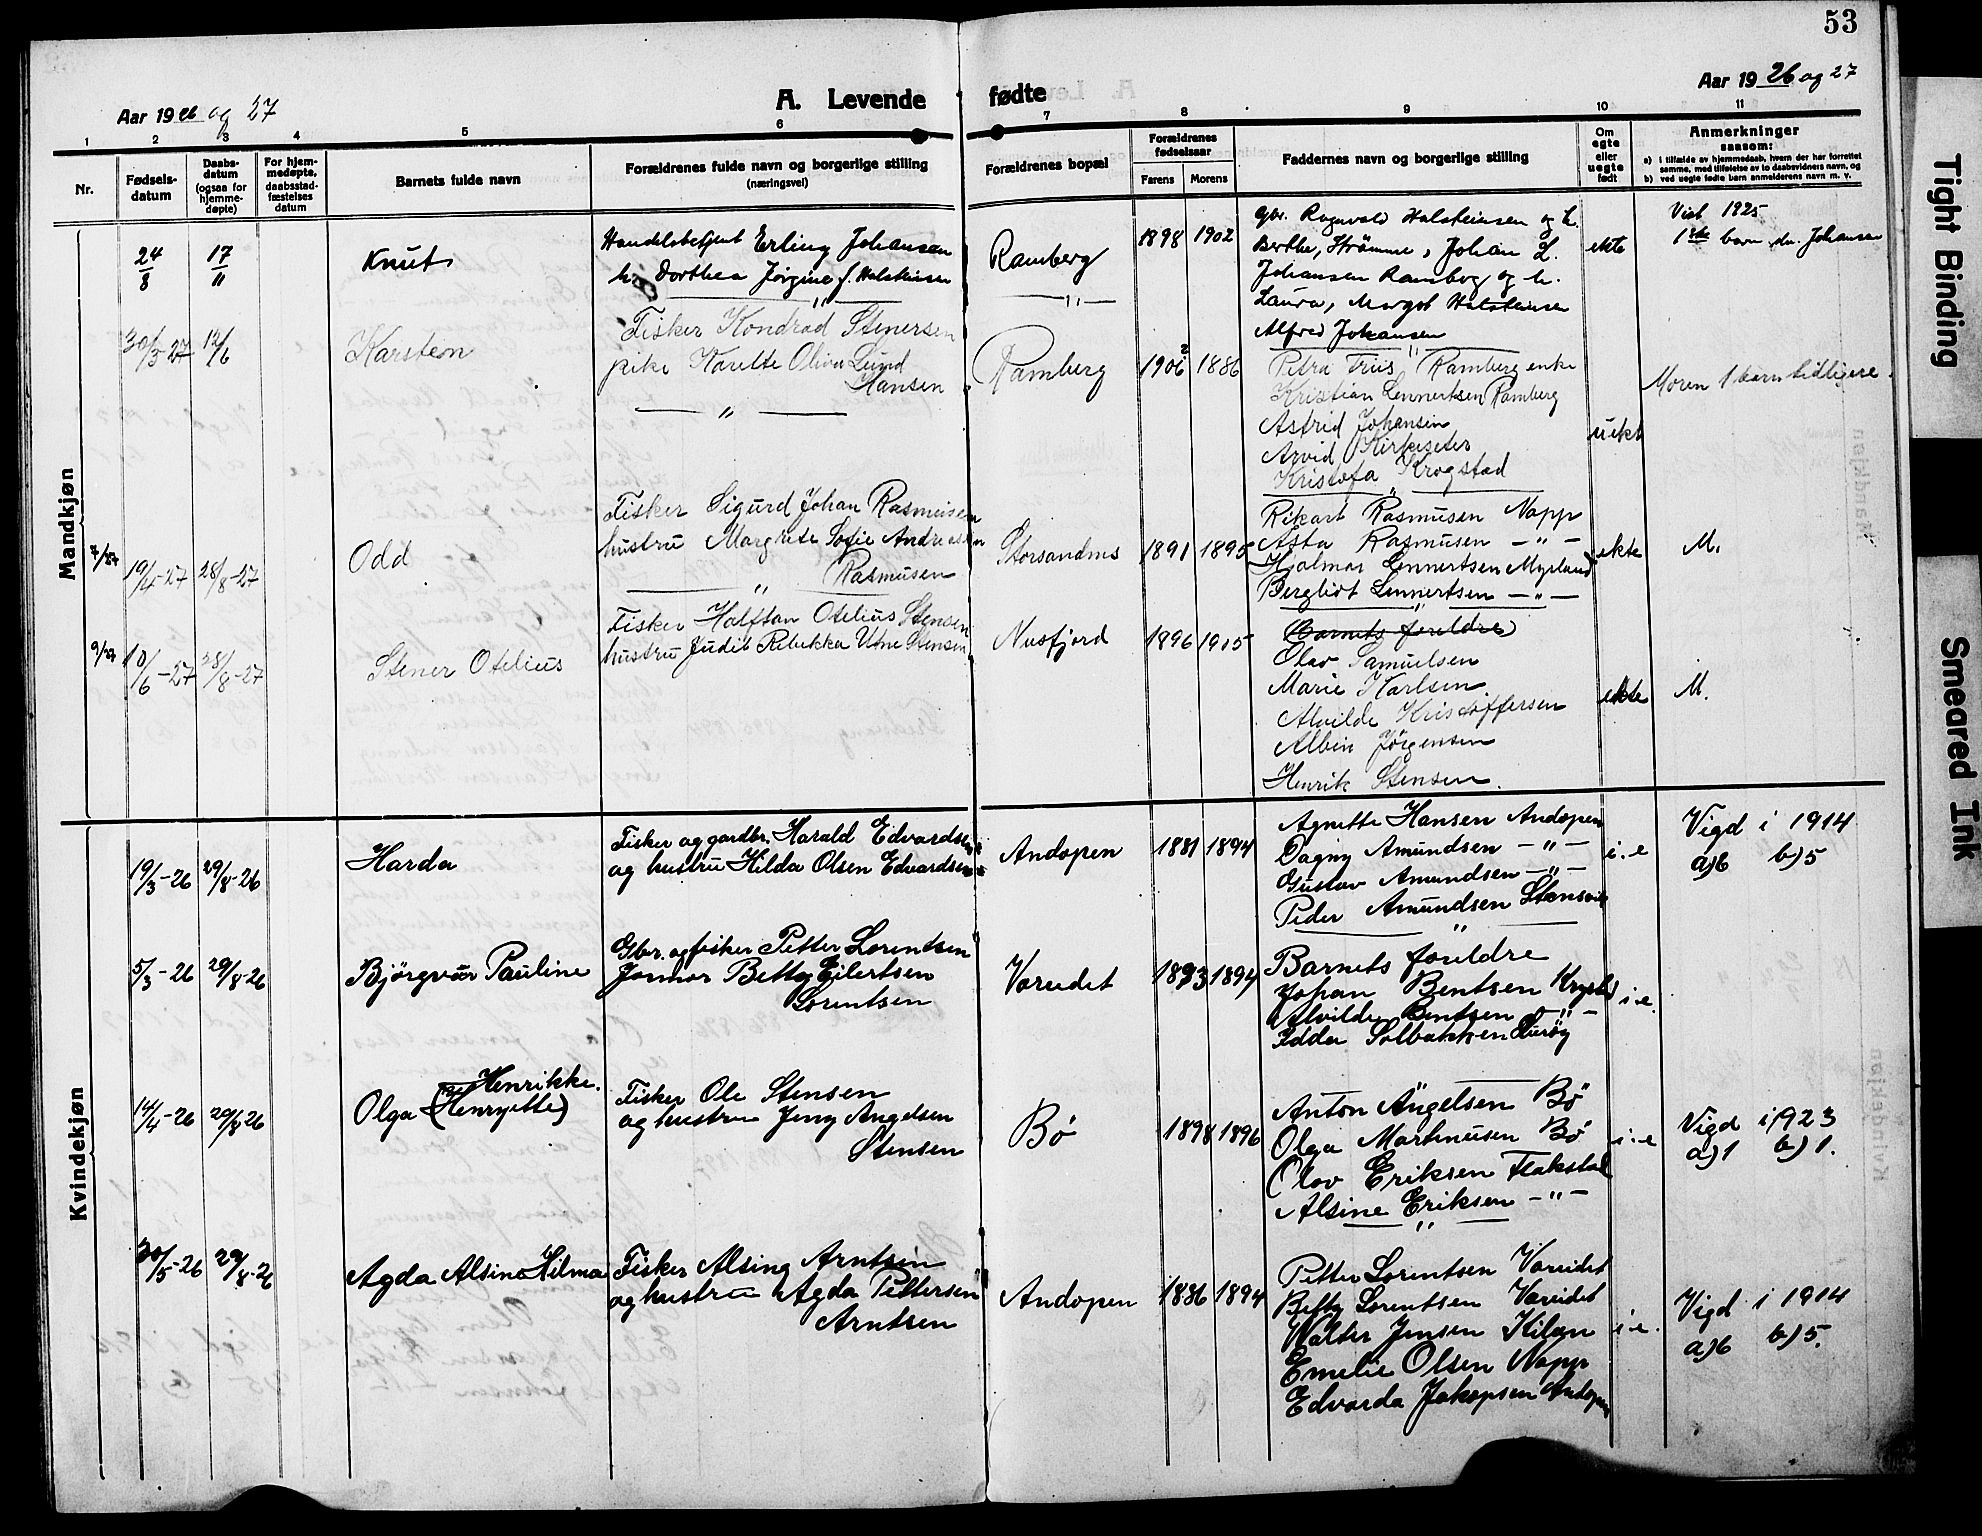 53
Aar 1926 og 27
A. Levende fødte
Aar 1926 og 27
1 2 3 4 5 6 7 8 9 10 11
Nr.
Fødsels-
datum
Daabs-
datum
(ogsaa for
hjemme-
døpte)
For hjem-
medøpte,
daabsstad-
fæstelses
datum
Barnets fulde navn
Forældrenes fulde navn og borgerlige stilling
(næringsvei)
Forældrenes bopæl
Forældrenes
fødselsaar
Farens Morens
Faddernes navn og borgerlige stilling
Om
egte
eller
uegte
født
Anmerkninger
saasom:
a) i tilfælde av hjemmedaab, hvem der har forrettet
samme, med tilføielse av to daabsvidners navn, og
b) ved uegte fødte barn anmelderens navn m. v.
Mandkjøn
24/8
17/11
Knut
Handelsbetjent Erling Johansen
h. Dorthea Jørgine f. Halsteinsen
Ramberg
1898 1902
gbr. Ragnvald Halsteinsen og h.
Berthe, Strømme, Johan L.
Johansen Ramberg og h.
Laura, Margot Halsteinsen
Alfred Johansen
ekte
Viet 1925
1ste barn, dn. Johansen
30/3-27
12/6
Karsten
Fisker Kondrad Stenersen
pike Karette Oliva Lund
Hansen
Ramberg
1906 2 1886
Petra Friis Ramberg enke
Kristian Lennertsen Ramberg
Astrid Johansen
Arvid Kirkeseter
Kristofa Krogstad
uekt
Moren 1 barn tidligere.
7/27
19/4-27
28/8-27
Odd
Fisker Sigurd Johan Rasmusen
hustru Margrete Sofie Andreasen
Rasmusen
Storsandnes
1891 1895
Rikart Rasmusen Napp
Asta Rasmusen -"-
Hjalmar Lennertsen Myrland
Bergliot Lennertsen -"-
ekte
M.
9/27
10/6-27
28/8-27
Stener Otelius
Fisker Halftan Otelius Stensen
hustru Judit Rebekka Une Stensen
Nusfjord
1896 1905
Barnets foreldre
Olav Samuelsen
Marie Karlsen
Alvilde Kristoffersen
Albin Jørgensen
Henrik Stensen.
ekte
M.
Kvindekjøn
19/3-26
29/8-26
Harda
Fisker og gardbr. Harald Edvardsen
og hustru Hilda Olsen Edvardsen
Andopen
1881 1894
Agnette Hansen Andopen
Dagny Amundsen -"-
Gustav Amundsen -"-
Peder Amundsen
i. e
Vigd i 1914
a)6 b)5
5/3-26
29/8-26
Bjørgvor Pauline
Gbr. og fisker Petter Lorentsen
Jonnor Betty Eilertsen
Lorentsen
Vareidet
1893 1894
Barnets foreldre
Johan Bentsen
Alvilde Bentsen -"-
Edda Solbakken Lurøy
i-e.
14/4-26
29/8-26
Olga (Henryette) Henrikke.
Fisker Ole Stensen
og hustru Jeny Angelsen
Stensen
Bø
1898 1896
Anton Angelsen Bø
Olga Martinusen Bø
Olav Eriksen Flakstad
Alsine Eriksen -"-
i-e
Vigd i 1923
a)1 b)1.
30/5-26
29/8-26
Agda Alsine Hilma
Fisker Alsing Arntsen
og hustru Agda Pettersen
Arntsen
Andopen
1886 1894
Petter Lorentsen Vareidet
Betty Lorentsen Vareidet
Walter Jensen Kilan
Emelie Olsen Napp
Edvarda Jakopsen Andopen
i-e.
Vigd i 1914
a)6 b)5.
Tight Binding
Smeared Ink